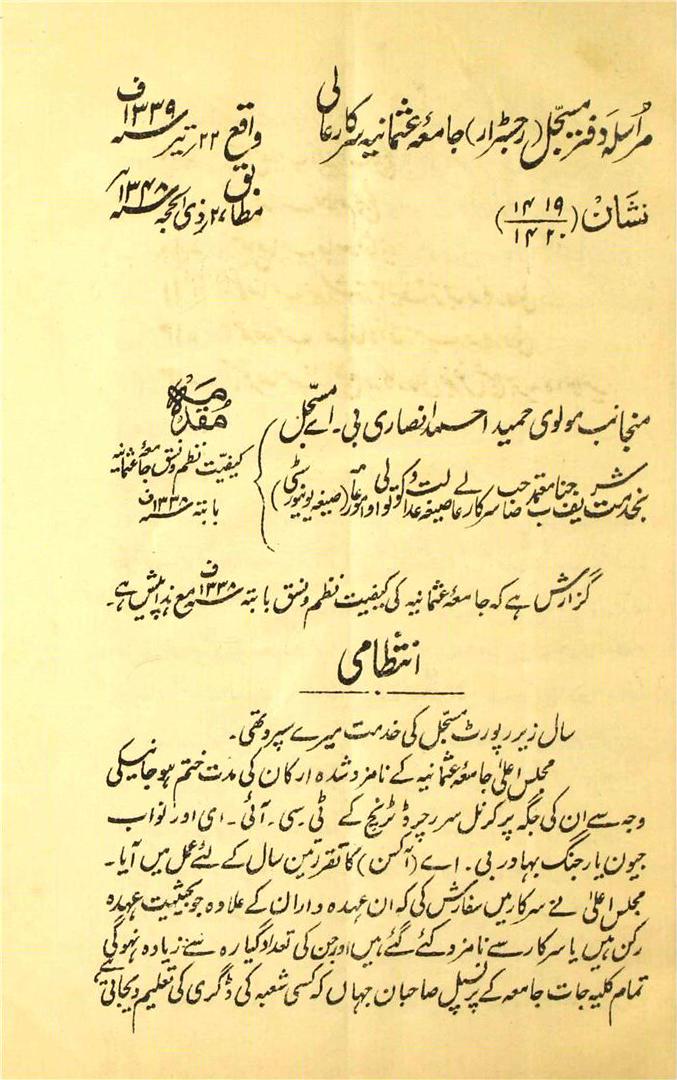 مراسلہ دفتر مسجل (رجسٹرار) جامعۂ عثمانیہ سرکار عالی
واقع ۲۲ تیر سنہ ۱۳۳۹ ف
نشان (۱۴۱۹/۱۴۲۰)
مطابق ۲۷ ذی الحجہ سنہ ۱۳۴۸ھ
منجانب مولوی حمید احمد انصاری بی۔ اے مسجل
بخدمت شریف جناب معتمد صاحب سرکار عالی صیغہ عدالت و کوتوالی و امور عامہ (صیغہ یونیورسٹی)
مقدمہ
کیفیت نظم و نسق جامعۂ عثمانیہ
بابتہ سنہ ۱۳۳۸ ف
گزارش ہے کہ جامعۂ عثمانیہ کی کیفیت نظم و نسق بابتہ سنہ ۱۳۳۸ ف مع ہذا پیش ہے۔
انتظامی
سال زیر رپورٹ مسجل کی خدمت میرے سپرد تھی۔
مجلس اعلیٰ جامعۂ عثمانیہ کے نامزد شدہ ارکان کی مدت ختم ہو جانیکی
وجہ سے ان کی جگہ پر کرنل سر رچرڈ ٹرنچ کے ٹی۔ سی۔ آئی۔ ای اور نواب
جیون یار جنگ بہادر بی۔ اے (آکسن) کا تقرر تین سال کے لئے عمل میں آیا۔
مجلس اعلیٰ نے سرکار میں سفارش کی کہ ان عہدہ داران کے علاوہ جو بحیثیت عہدہ
رکن ہیں یا سرکار سے نامزد کئے گئے ہیں اور جن کی تعداد گیارہ سے زیادہ نہوگی
تمام کلیہ جات جامعہ کے پرنسپل صاحبان جہاں کہ کسی شعبہ کی ڈگری کی تعلیم دیجاتی ہے